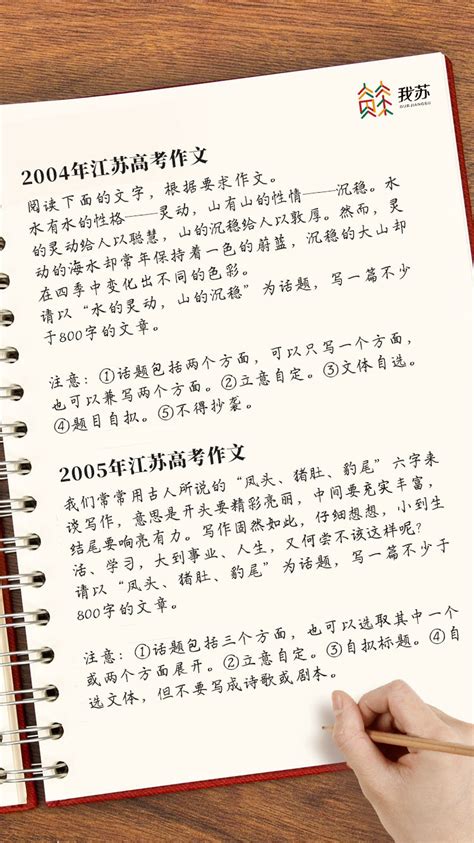 我苏
OUR JIANGSU
2004年江苏高考作文
阅读下面的文字，根据要求作文。
水有水的性格——灵动，山有山的性情——沉稳。水
的灵动给人以聪慧，山的沉稳给人以敦厚。然而，灵
动的海水却常年保持着一色的蔚蓝，沉稳的大山却
在四季中变化出不同的色彩。
请以“水的灵动，山的沉稳”为话题，写一篇不少
于800字的文章。
注意：①话题包括两个方面，可以只写一个方面，
也可以兼写两个方面。②立意自定。③文体自选。
④题目自拟。⑤不得抄袭。
2005年江苏高考作文
我们常常用古人所说的“凤头、猪肚、豹尾”六字来
谈写作，意思是开头要精彩亮丽，中间要充实丰富，
结尾要响亮有力。写作固然如此，仔细想想，小到生
活、学习，大到事业、人生，又何尝不该这样呢？
请以“凤头、猪肚、豹尾”为话题，写一篇不少于
800字的文章。
注意：①话题包括三个方面，也可以选取其中一个
或两个方面展开。②立意自定。③自拟标题。④自
选文体，但不要写成诗歌或剧本。